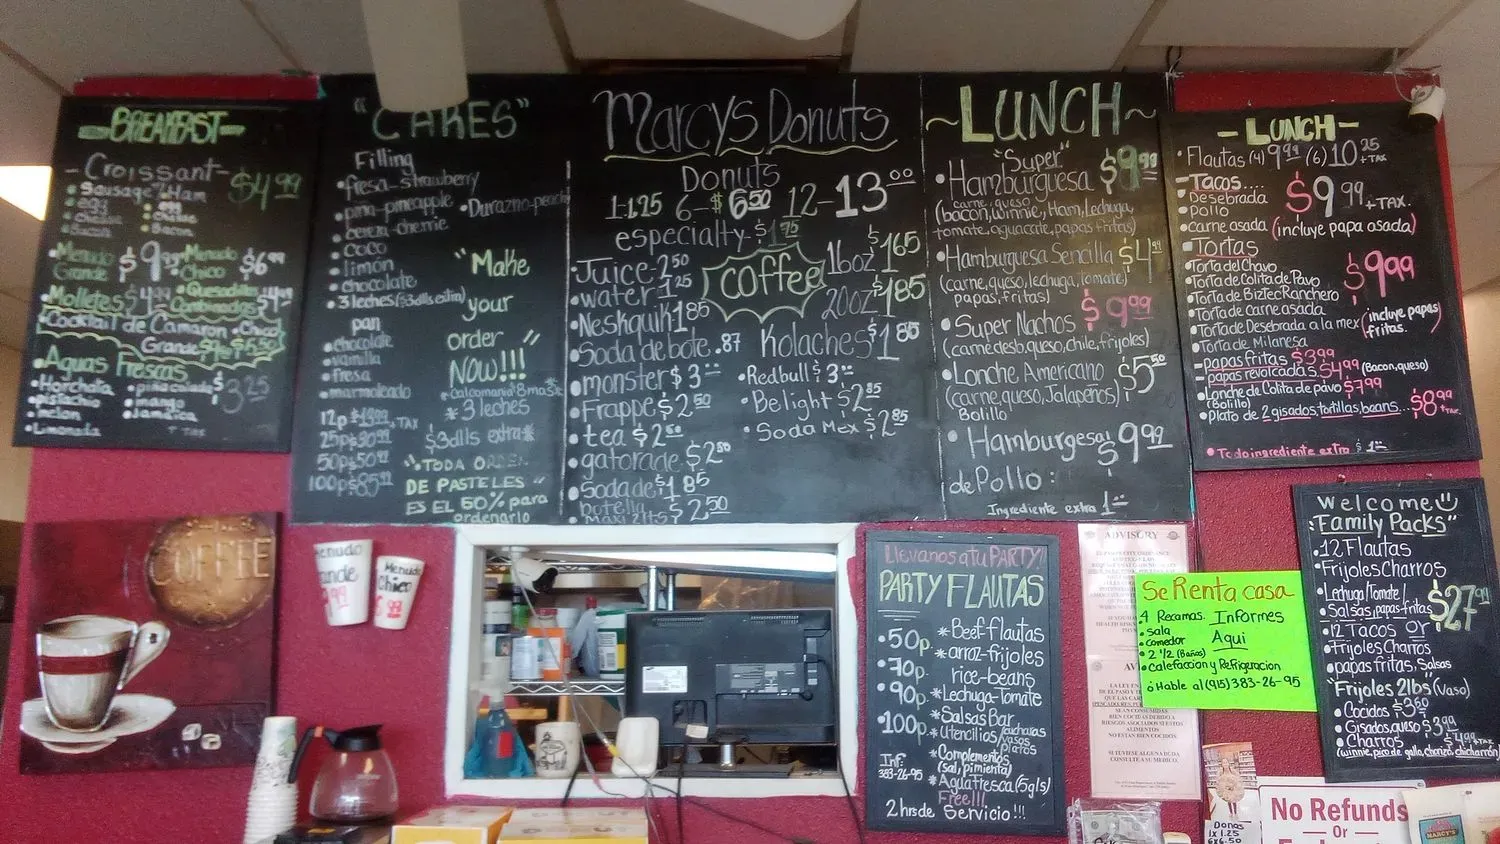 BREAKFAST
Croissant $4.99
Sausage Ham
egg egg
Bacon
Menudo Grande $9.99 Menudo Chico $6.99
Molletes $4.99 Quesadillas Combinadas $4.99
Cocktail de Camaron Chico
Grande
Aguas Frescas
Horchata piña colada $3.25
pistachio mango
melon Jamaica
Limonada
TAX
"CAKES"
Filling
fresa-strawberry
piña-pineapple •Durazno-peach
cereza-cherrie
COCO
limón
chocolate
3 leches ($3dlls extra)
pan
chocolate
vainilla
fresa
marmoleado
12p TAX
25p $30.99
50p $50.99
100p $85.99
"Make
your
order"
NOW!!!
* 3 leches
$3dlls extra*
"TODA ORDEN
DE PASTELES"
ES EL 50% para
ordenarlo
Marcys Donuts
Donuts
1-1.25 6-$6.50 12-13.00
especialty-$1.75
coffee
16oz $1.65
20oz $1.85
•Juice-2.50
•water-1.25
•Neskquik 1.85
•Soda de bote .87
•monster $3.00
•Frappe $2.50
•tea $2.50
•gatorade $2.50
•Soda de $1.85
botella
MAXI 2lts $2.50
Kolaches $1.85
•Redbull $3.00
•Be light $2.85
•Soda Mex $2.85
~LUNCH~
"Super"
Hamburguesa $9.99
(carne, queso,
bacon, winnie, Ham, Lechuga,
tomate, aguacate, papas fritas)
•Hamburguesa Sencilla $4.99
(carne, queso, lechuga, tomate)
papas, fritas)
•Super Nachos $9.99
(carne desb. queso, chile, frijoles)
•Lonche Americano $5.50
(carne, queso, Jalapeños)
Bolillo
•Hamburgesa $9.99
de Pollo:
Ingrediente extra 1.00
- LUNCH -
•Flautas (4) 9.99 (6) 10.25 +TAX
-Tacos.... $9.99 +TAX.
Desebrada
•pollo
•carne asada (incluye papa asada)
Tortas
•Torta del Chavo $9.99
•Torta de Colita de Pavo
•Torta de BizTec Ranchero
•Torta de carne asada
•Torta de Desebrada a la mex (incluye papas fritas.
•Torta de Milanesa
-papas fritas $3.99
-papas revolcadas $4.99 (Bacon, queso)
•Lonche de Colita de pavo $7.99
(Bolillo)
•plato de 2 gisados, tortillas, beans... $8.99 +TAX.
•Todo ingrediente extra $1.00
COFFEE
Menudo
Grande
9.99
Menudo
Chico
Llevanos a tu PARTY!
PARTY FLAUTAS
•50p. *Beef flautas
•70p. *arroz-frijoles
rice-beans
•90p *Lechuga-Tomate
•100p. *Salsas Bar
*Utencilios/cucharas
vasos
platos
*Complementos
(sal, pimienta)
*Agua fresca (5gls)
Free!!!
Inf:
383-26-95
2 hrs de Servicio!!!
ADVISORY
Se Renta casa
4 Recamas. Informes
•sala Aqui
•comedor
•2 1/2 (Baños)
•Calefaccion y Refrigeracion
•Hable al (915) 383-26-95
Welcome
"Family Packs"
•12 Flautas
•Frijoles Charros
Lechuga/Tomate/
•Salsas, papas-fritas $27.99
•12 TACOS or
•Frijoles Charros
•papas fritas, Salsas
"Frijoles 2lbs (Vaso)
•Cocidos $3.60
•Gisados, queso $3.99
•Charros $4.99 +TAX
(winnie, pico de gallo, chorizo, chicharron)
Donas
1x1.25
6x6.50
No Refunds
Or
MARCY'S